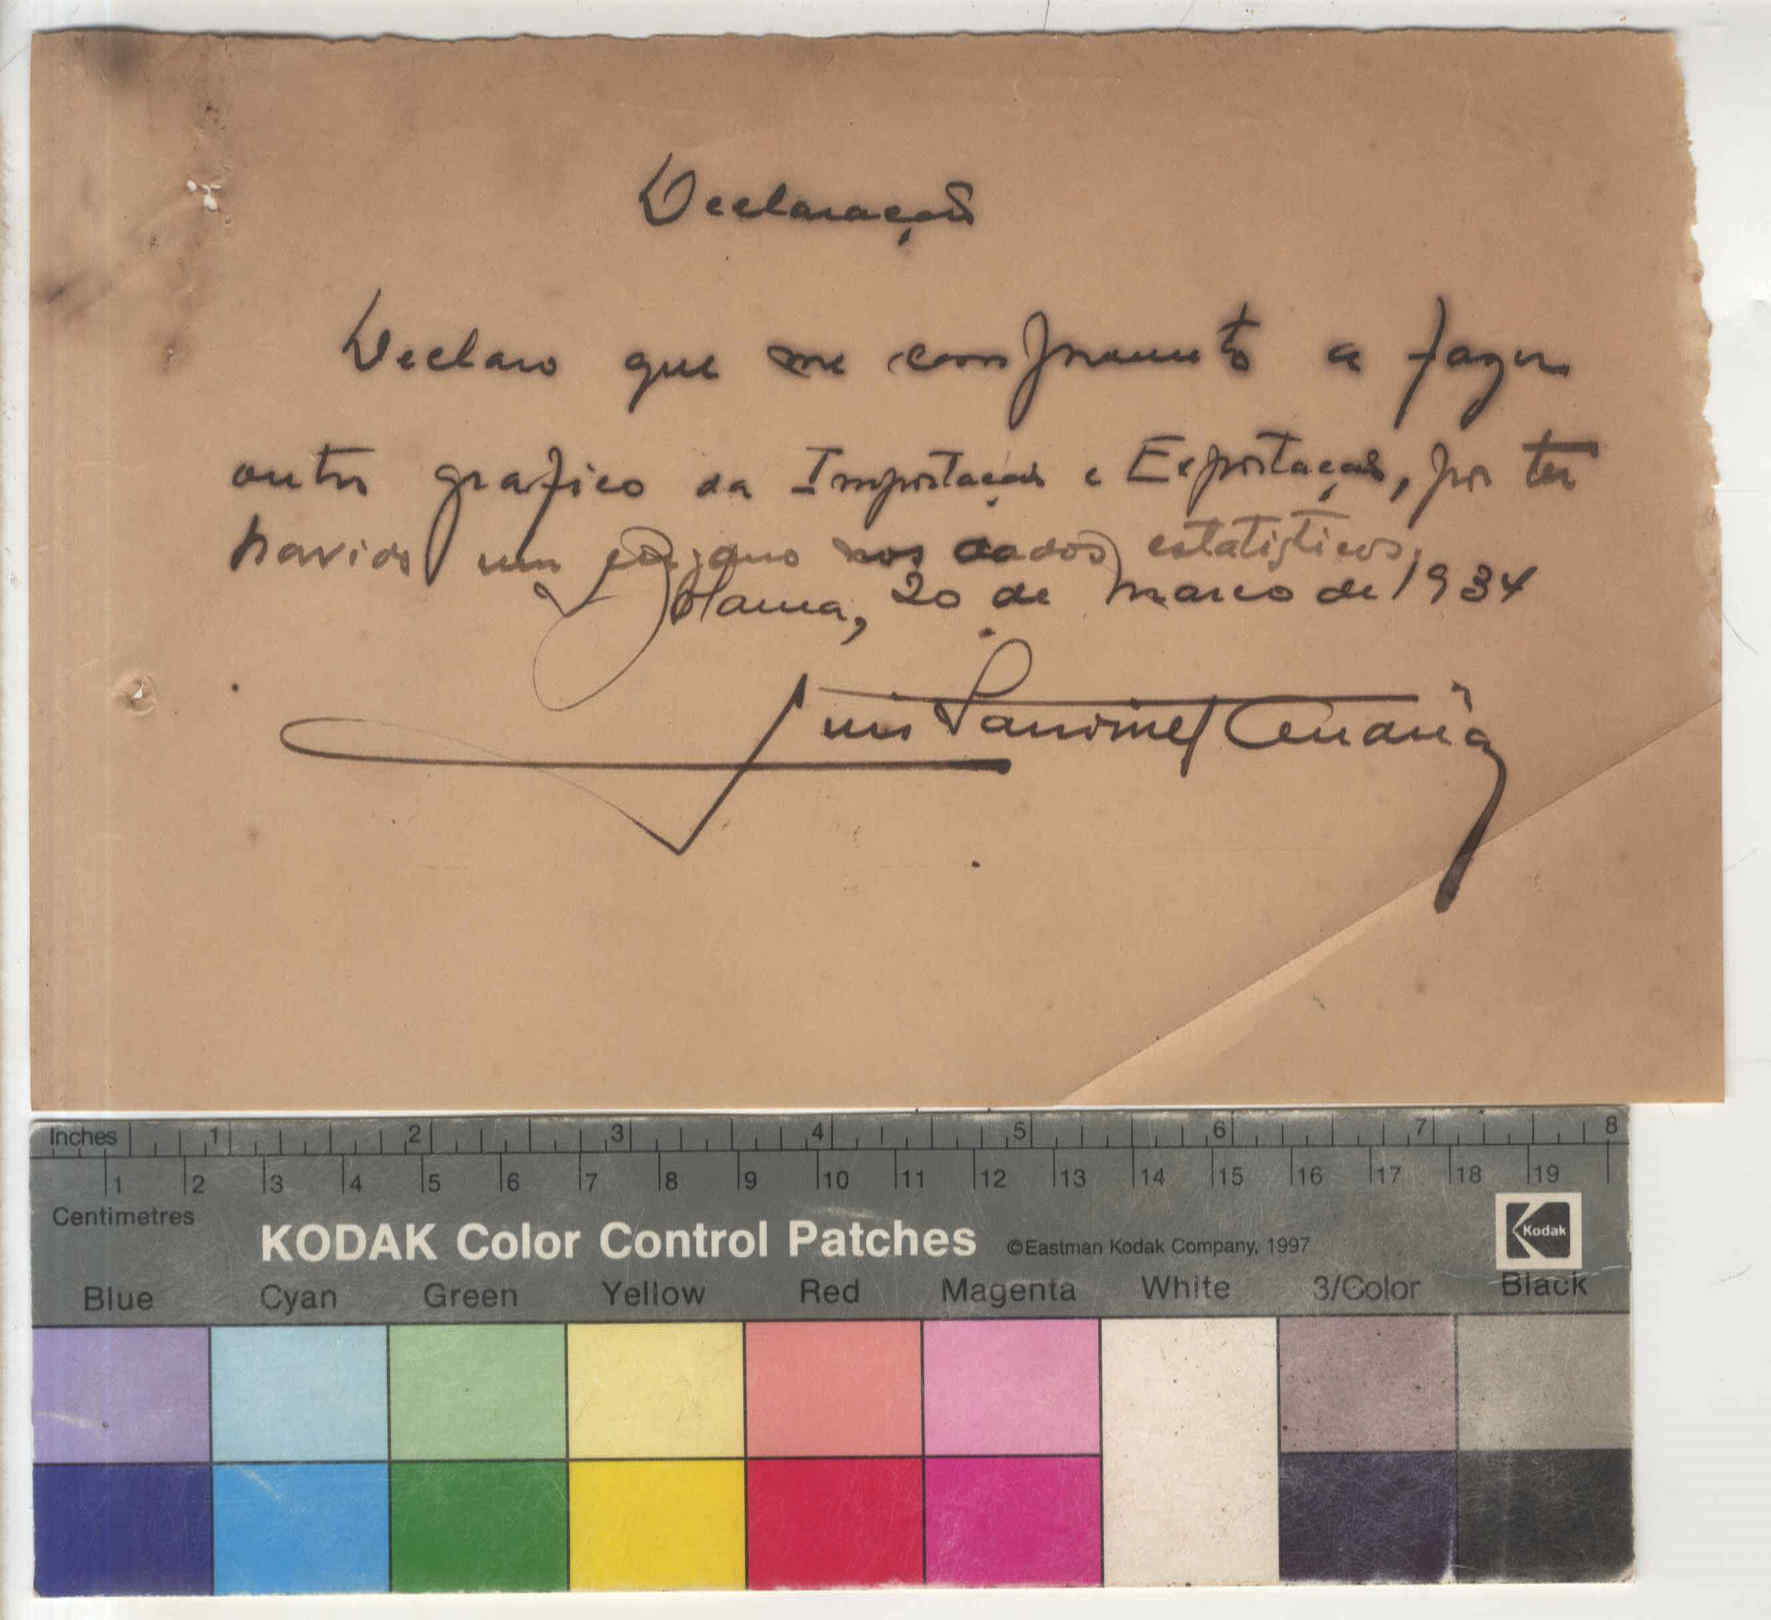 Declaração
Declaro que me comprometo a fazer
outro grafico da Importação e Exportação, por ter
havido um engano nos dados estatisticos.
Bolama, 20 de Março de 1934
Luis
Inches 1 2 3 4 5 6 7 8
1 2 3 4 5 6 7 8 9 10 11 12 13 14 15 16 17 18 19
Centimetres
KODAK Color Control Patches ©Eastman Kodak Company, 1997 Kodak
Blue Cyan Green Yellow Red Magenta White 3/Color Black